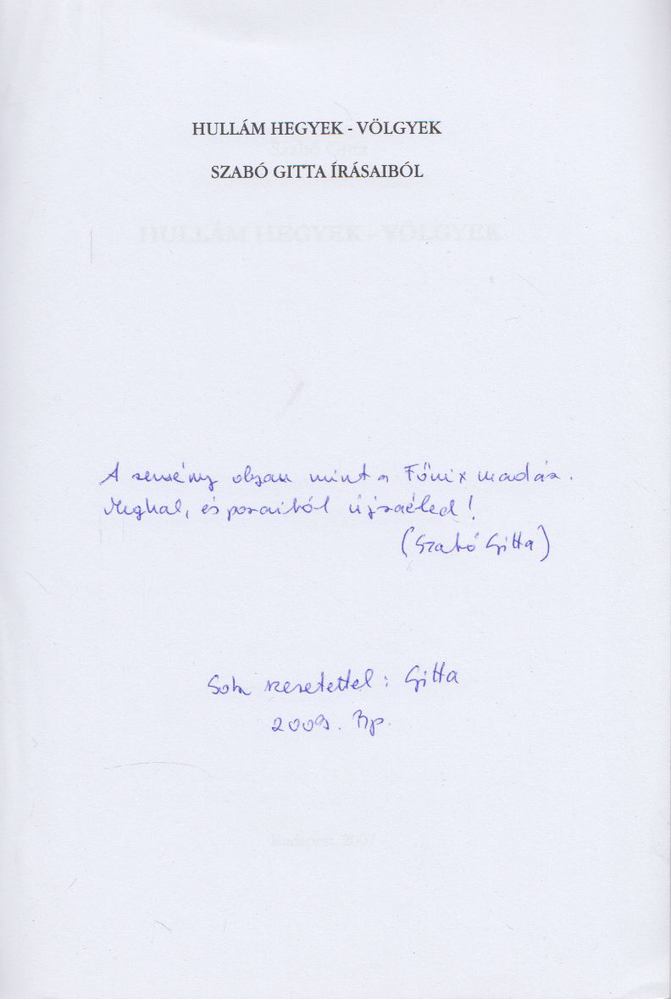 HULLÁM HEGYEK - VÖLGYEK
SZABÓ GITTA ÍRÁSAIBÓL
HULLÁM HEGYEK - VÖLGYEK
A remény olyan mint a Főnix madár.
Meghal, és poraiból újraéled!
(Szabó Gitta)
Sok szeretettel: Gitta
2009. Bp.